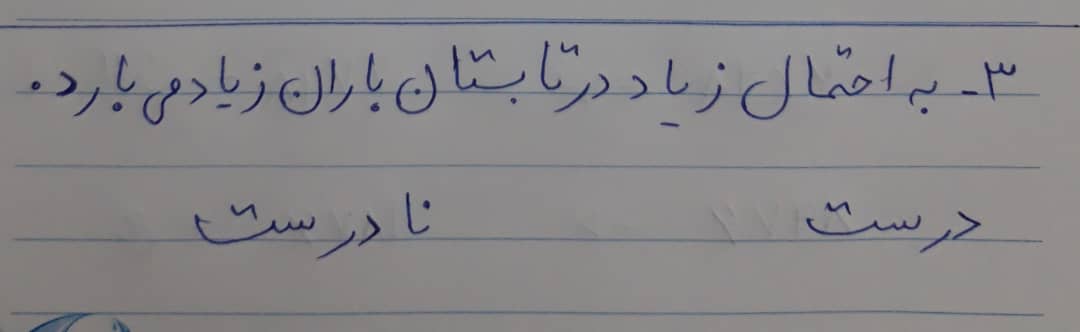 ۳- به احتمال زیاد در تابستان باران زیاد می بارد.
درست نادرست